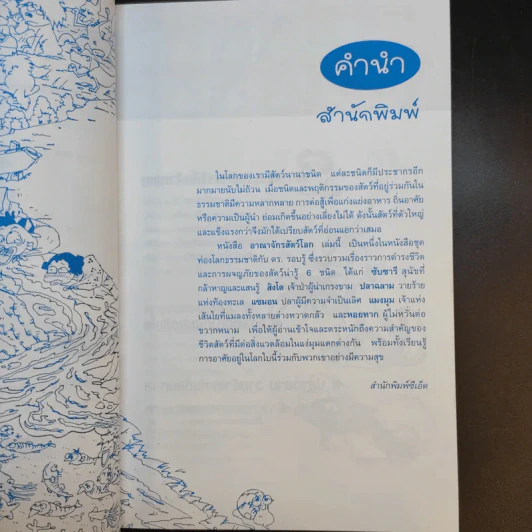 คำนำ
สำนักพิมพ์
ในโลกของเรามีสัตว์นานาชนิด แต่ละชนิดก็มีประชากรอีก
มากมายนับไม่ถ้วน เมื่อชนิดและพฤติกรรมของสัตว์ที่อยู่ร่วมกันใน
ธรรมชาติมีความหลากหลาย การต่อสู้เพื่อแก่งแย่งอาหาร ถิ่นอาศัย
หรือความเป็นผู้นำ ย่อมเกิดขึ้นอย่างเลี่ยงไม่ได้ ดังนั้นสัตว์ที่ตัวใหญ่
และแข็งแรงกว่าจึงมักได้เปรียบสัตว์ที่อ่อนแอกว่าเสมอ
หนังสือ อาณาจักรสัตว์โลก เล่มนี้ เป็นหนึ่งในหนังสือชุด
ท่องโลกธรรมชาติกับ ดร. รอบรู้ ซึ่งรวบรวมเรื่องราวการดำรงชีวิต
และการผจญภัยของสัตว์น่ารู้ 6 ชนิด ได้แก่ ซับซารี สุนัขที่
กล้าหาญและแสนรู้ สิงโต เจ้าป่าผู้น่าเกรงขาม ปลาฉลาม วายร้าย
แห่งท้องทะเล แซมอน ปลาผู้มีความจำเป็นเลิศ แมงมุม เจ้าแห่ง
เส้นใยที่แมลงทั้งหลายต่างหวาดกลัว และหอยทาก ผู้ไม่หวั่นต่อ
ขวากหนาม เพื่อให้ผู้อ่านเข้าใจและตระหนักถึงความสำคัญของ
ชีวิตสัตว์ที่มีต่อสิ่งแวดล้อมในแง่มุมแตกต่างกัน พร้อมทั้งเรียนรู้
การอาศัยอยู่ในโลกใบนี้ร่วมกับพวกเขาอย่างมีความสุข
สำนักพิมพ์ซีเอ็ด